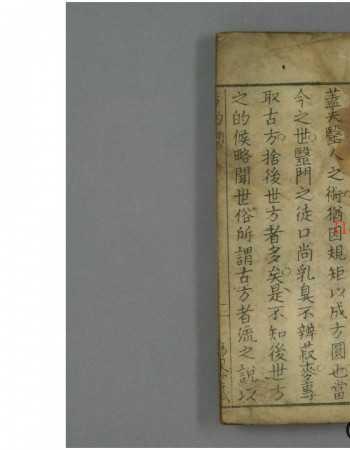 蓋夫毉人之術猶因規矩以成方圓也當
今之世毉門之徒口尚乳臭不辨菽麥專
取古方捨後世方者多矣是不知後世方
之的候略聞世俗所謂古方者流之說以